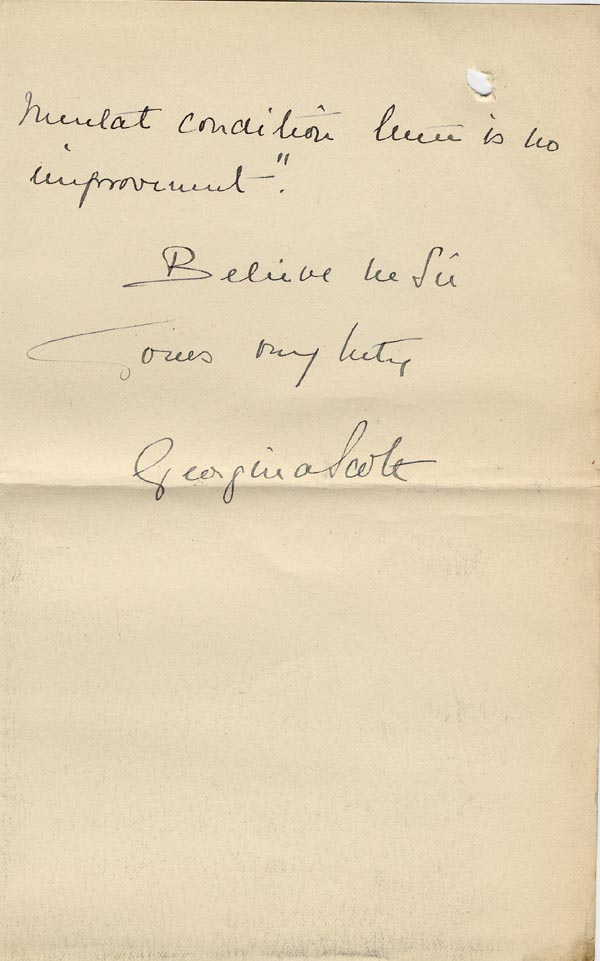 mental condition there is no
improvement".
Believe me Sir
Yours very truly
Georgina Scott